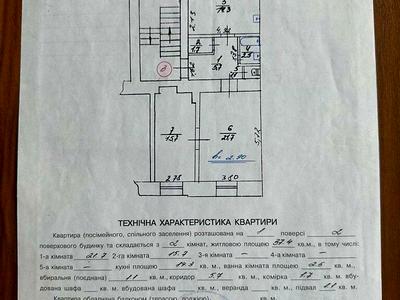 5
14.3
4,74
2
1.7
1
5.7
4
2.5
3
1.1
8
7
15.7
6
21.7
5,72
h=2.70
2.75
3.80
ТЕХНІЧНА ХАРАКТЕРИСТИКА КВАРТИРИ
Квартира (посімейного, спільного заселення) розташована на 1 поверсі 2
поверхового будинку та складається з 2 кімнат, житловою площею 37.4 кв.м., в тому числі:
1-а кімната 21.7 2-га кімната 15.7 3-я кімната – 4-а кімната
5-а кімната – кухні площею 14.3 кв. м., ванна кімната площею 2.5 кв. м.,
вбиральня (поєднана) 1.1 кв. м., коридор 5.7 кв. м., комірка 1.7 кв. м. вбу-
дована шафа кв. м. вбудована шафа кв. м., веранда кв. м., підвал кв. м.
Квартира обладнана балконом (терасою, лоджією) кв. м.